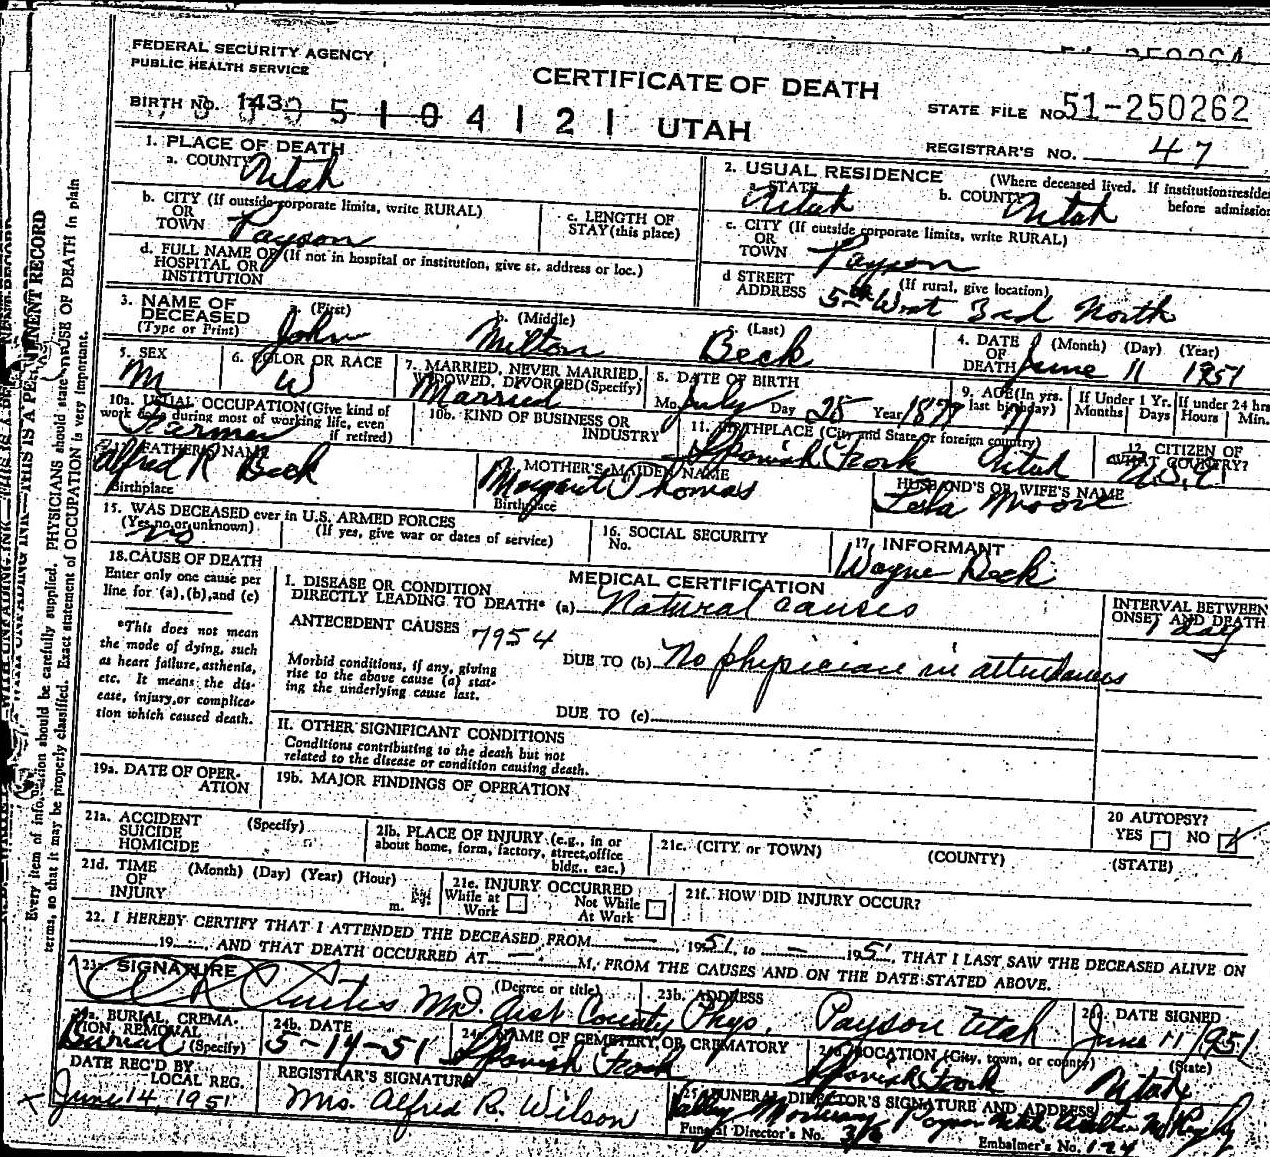 FEDERAL SECURITY AGENCY
PUBLIC HEALTH SERVICE
CERTIFICATE OF DEATH
STATE FILE NO. 51-250262
BIRTH NO. 143 5104121 UTAH
REGISTRAR'S NO. 47
1. PLACE OF DEATH
a. COUNTY Utah
2. USUAL RESIDENCE (Where deceased lived. If institution: reside
before admission
a. STATE Utah b. COUNTY Utah
b. CITY (If outside corporate limits, write RURAL)
OR
TOWN Payson
c. LENGTH OF
STAY (this place)
c. CITY (If outside corporate limits, write RURAL)
OR
TOWN Payson
d. FULL NAME OF (If not in hospital or institution, give st. address or loc.)
HOSPITAL OR
INSTITUTION
d STREET (If rural, give location)
ADDRESS 5th West 3rd North
3. NAME OF DECEASED (Type or Print)
a. (First) John b. (Middle) Milton c. (Last) Beck
4. DATE OF DEATH (Month) (Day) (Year)
June 11 1951
5. SEX M
6. COLOR OR RACE W
7. MARRIED, NEVER MARRIED,
WIDOWED, DIVORCED (Specify)
Married
8. DATE OF BIRTH
Mo. July Day 25 Year
9. AGE (In yrs.
last birthday)
If Under 1 Yr. Months Days
If under 24 hrs Hours Min.
10a. USUAL OCCUPATION (Give kind of
work done during most of working life, even
if retired) Farmer
10b. KIND OF BUSINESS OR
INDUSTRY
11. BIRTHPLACE (City and State or foreign country)
Spanish Fork Utah
12. CITIZEN OF
WHAT COUNTRY?
FATHER'S NAME
Alfred R Beck
Birthplace
MOTHER'S MAIDEN NAME
Margaret Thomas
Birthplace
HUSBAND'S OR WIFE'S NAME
Lela Moore
15. WAS DECEASED ever in U.S. ARMED FORCES
(Yes, no, or unknown) (If yes, give war or dates of service)
no
16. SOCIAL SECURITY
No.
17. INFORMANT
Wayne Beck
18. CAUSE OF DEATH
Enter only one cause per
line for (a), (b), and (c)
*This does not mean
the mode of dying, such
as heart failure, asthenia,
etc. It means the dis-
ease, injury, or complica-
tion which caused death.
MEDICAL CERTIFICATION
I. DISEASE OR CONDITION
DIRECTLY LEADING TO DEATH* (a) Natural causes
ANTECEDENT CAUSES 7954
Morbid conditions, if any, giving
rise to the above cause (a) stat-
ing the underlying cause last.
DUE TO (b) No physician in attendance
DUE TO (c)
INTERVAL BETWEEN
ONSET AND DEATH
1 day
II. OTHER SIGNIFICANT CONDITIONS
Conditions contributing to the death but not
related to the disease or condition causing death.
19a. DATE OF OPER-
ATION
19b. MAJOR FINDINGS OF OPERATION
20 AUTOPSY?
YES NO
21a. ACCIDENT (Specify)
SUICIDE
HOMICIDE
21b. PLACE OF INJURY (e.g., in or
about home, form, factory, street, office
bldg., eac.)
21c. (CITY or TOWN) (COUNTY) (STATE)
21d. TIME (Month) (Day) (Year) (Hour)
OF
INJURY m.
21e. INJURY OCCURRED
While at Work Not While At Work
21f. HOW DID INJURY OCCUR?
22. I HEREBY CERTIFY THAT I ATTENDED THE DECEASED FROM — , 1951, to — 195 , THAT I LAST SAW THE DECEASED ALIVE ON
19 , AND THAT DEATH OCCURRED AT — M., FROM THE CAUSES AND ON THE DATE STATED ABOVE.
SIGNATURE (Degree or title)
Curtis MD. Asst County Phys.
23b. ADDRESS
Payson Utah
DATE SIGNED
June 11 1951
BURIAL, CREMA-
TION, REMOVAL
Burial (Specify)
24b. DATE
5-14-51
NAME OF CEMETERY OR CREMATORY
Spanish Fork
LOCATION (City, town, or county) (State)
Spanish Fork Utah
DATE REC'D BY
LOCAL REG.
June 14, 1951
REGISTRAR'S SIGNATURE
Mrs. Alfred R. Wilson
25. FUNERAL DIRECTOR'S SIGNATURE AND ADDRESS
Valley Mortuary Payson Utah
Funeral Director's No.
Embalmer's No.
Every item of information should be carefully supplied. PHYSICIANS should state CAUSE OF DEATH in plain
terms, so that it may be properly classified. Exact statement of OCCUPATION is very important.